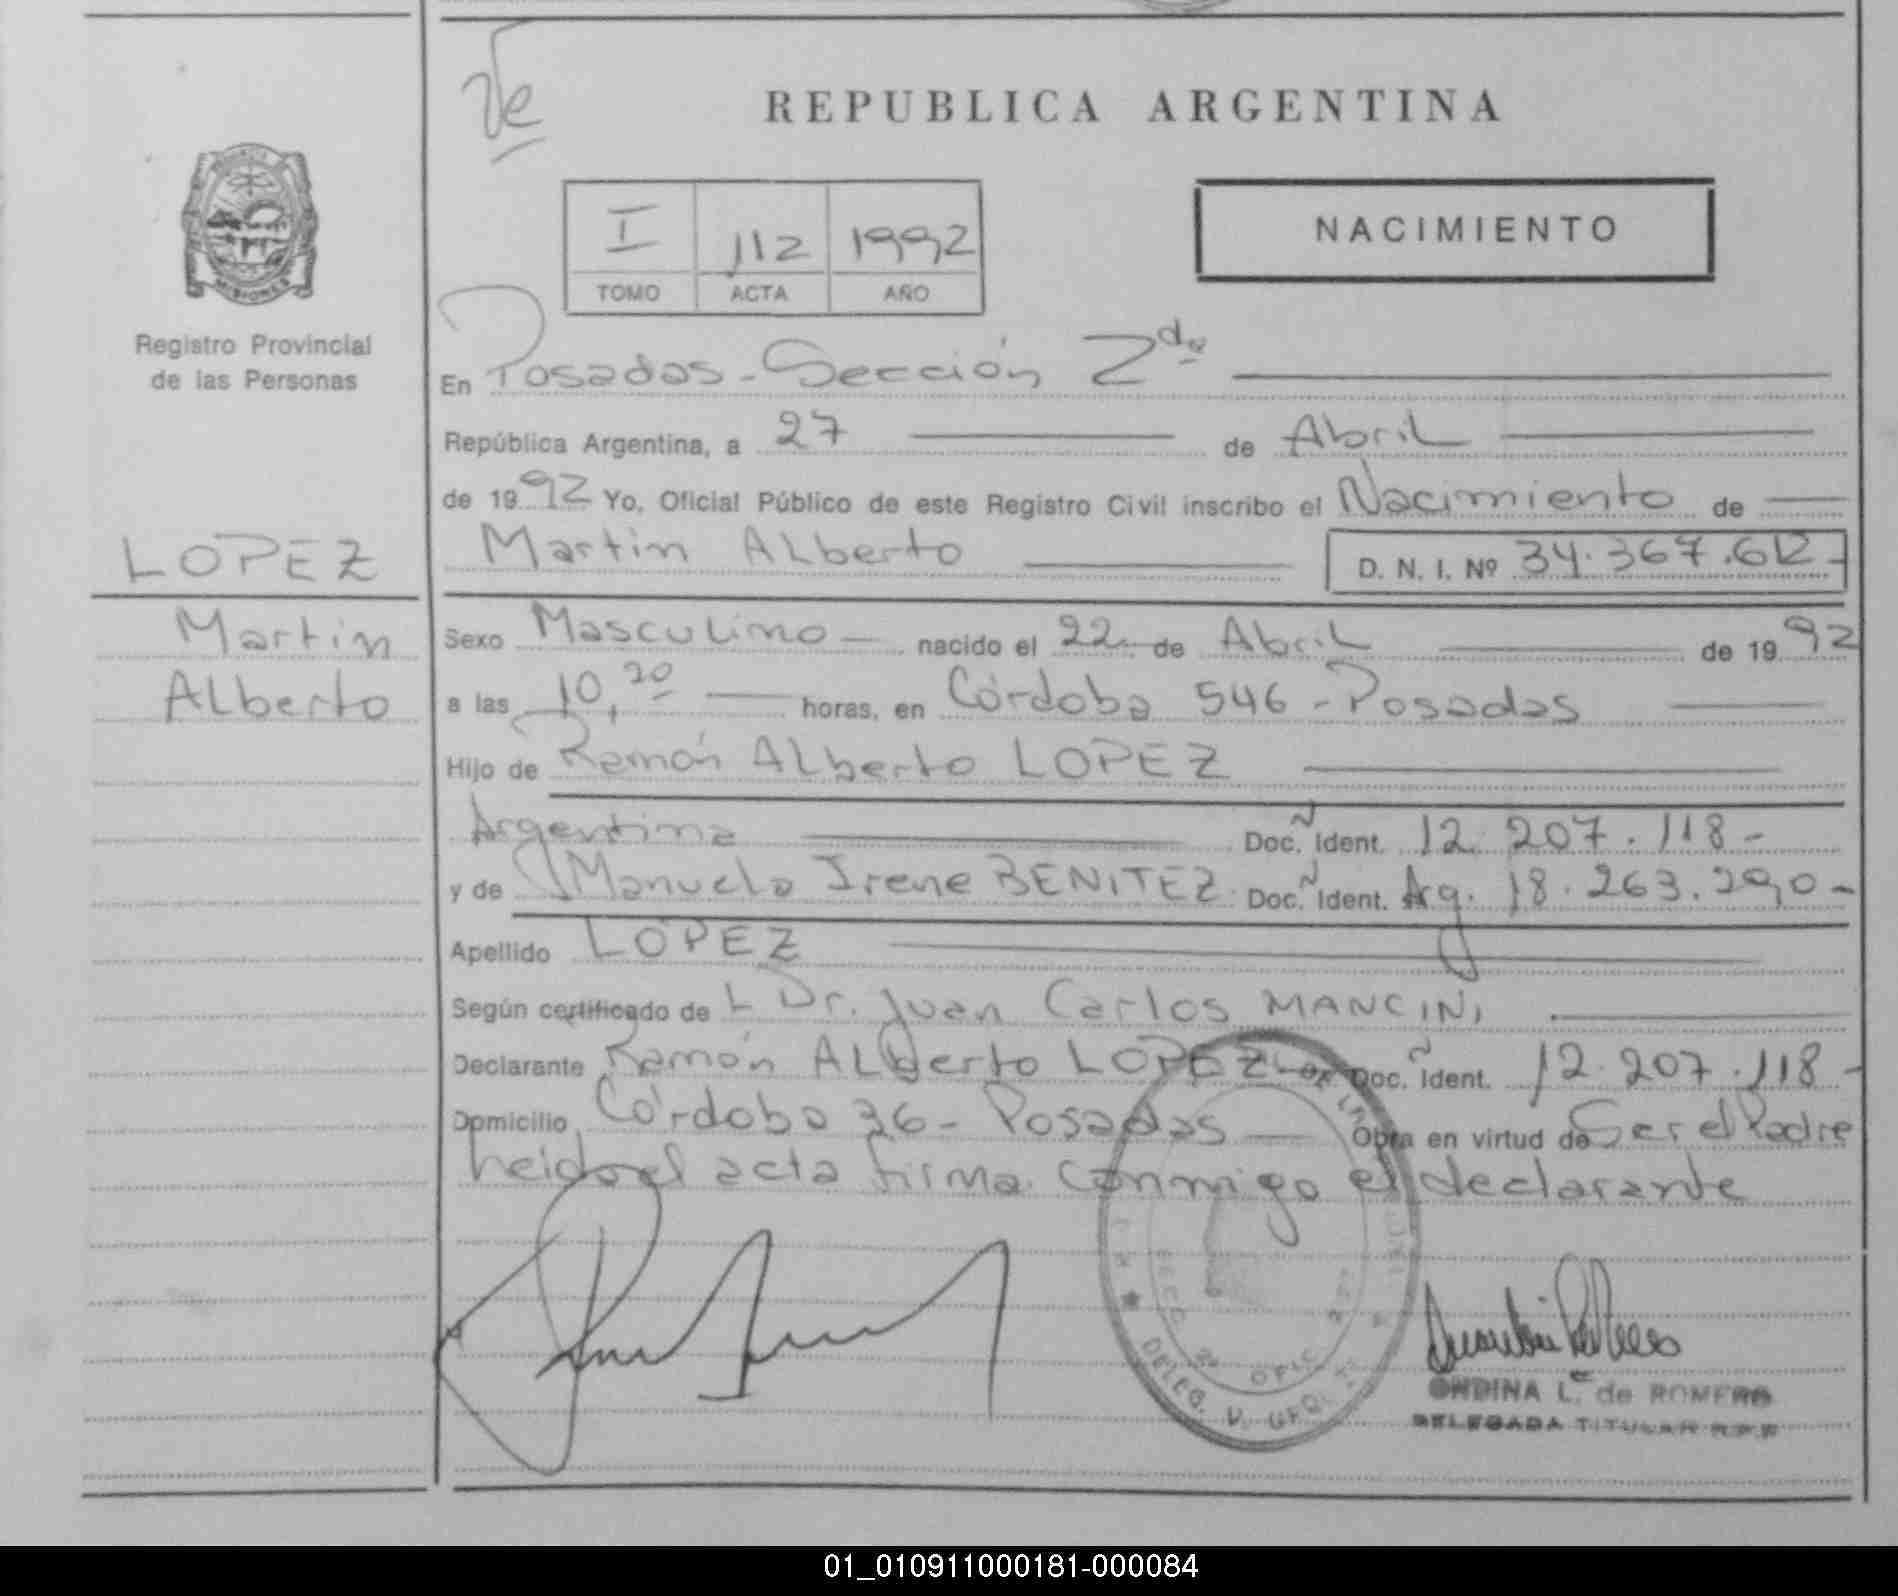 Ve
REPUBLICA ARGENTINA
MISIONES
Registro Provincial
de las Personas
I 112 1992
TOMO ACTA AÑO
NACIMIENTO
En Posadas - Sección 2da
República Argentina, a 27 de Abril
de 1992 Yo, Oficial Público de este Registro Civil inscribo el Nacimiento de
LOPEZ
Martin Alberto
Martin ALberto D. N. I. Nº 34.367.612-
Sexo Masculino - nacido el 22 de Abril de 1992
a las 10,20 horas, en Córdoba 546 - Posadas
Hijo de Ramón ALberto LOPEZ
Argentina Doc. Ñ Ident. 12.207.118-
y de Manuela Irene BENITEZ Doc. Ñ Ident. Arg. 18.263.290-
Apellido LOPEZ
Según certificado de L Dr. Juan Carlos MANCINI
Declarante Ramón ALberto LOPEZ Doc. Ñ Ident. 12.207.118-
Domicilio Córdoba 36 - Posadas Obra en virtud de Ser el Padre
Leido el acta firma conmigo el declarante
SECC. 2ª OFIC.
DELEG.
ONDINA L. de ROMERO
DELEGADA TITULAR R.P.P
01_010911000181-000084